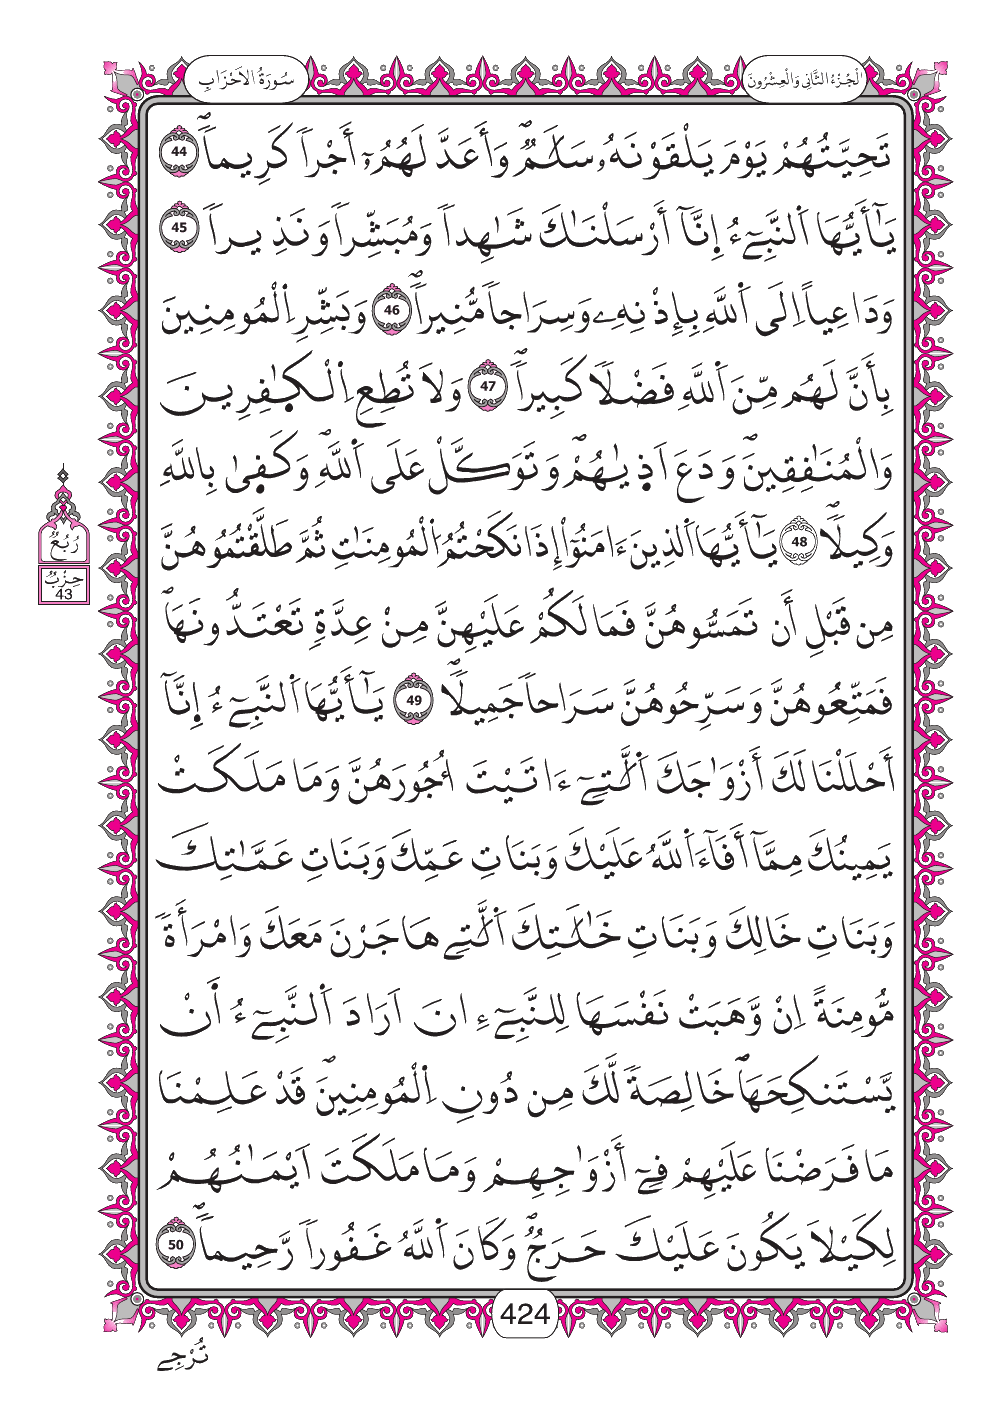 الْجُزْءُ الثَّانِي وَالْعِشْرُونَ
سُورَةُ الْأَحْزَابِ
تَحِيَّتُهُمْ يَوْمَ يَلْقَوْنَهُۥ سَلَٰمٌۖ وَأَعَدَّ لَهُمُۥٓ أَجْراٗ كَرِيماٗۖ 44
يَٰٓأَيُّهَا اَ۬لنَّبِےٓءُ اِ۪نَّآ أَرْسَلْنَٰكَ شَٰهِداٗ وَمُبَشِّراٗ وَنَذِيراٗ 45
وَدَاعِياً اِلَى اَ۬للَّهِ بِإِذْنِهِۦ وَسِرَاجاٗ مُّنِيراٗۖ 46 وَبَشِّرِ اِ۬لْمُومِنِينَ
بِأَنَّ لَهُم مِّنَ اَ۬للَّهِ فَضْلاٗ كَبِيراٗۖ 47 وَلَا تُطِعِ اِ۬لْكٰ۪فِرِينَ
وَالْمُنَٰفِقِينَۖ وَدَعَ اَذ۪يٰهُمْۖ وَتَوَكَّلْ عَلَى اَ۬للَّهِۖ وَكَف۪يٰ بِاللَّهِ
وَكِيلاٗۖ 48 يَٰٓأَيُّهَا اَ۬لذِينَ ءَامَنُوٓاْ إِذَا نَكَحْتُمُ اُ۬لْمُومِنَٰتِ ثُمَّ طَلَّقْتُمُوهُنَّ
مِن قَبْلِ أَن تَمَسُّوهُنَّ فَمَا لَكُمْ عَلَيْهِنَّ مِنْ عِدَّةٖ تَعْتَدُّونَهَاۖ
فَمَتِّعُوهُنَّ وَسَرِّحُوهُنَّ سَرَاحاٗ جَمِيلاٗۖ 49 يَٰٓأَيُّهَا اَ۬لنَّبِےٓءُ اِ۪نَّآ
أَحْلَلْنَا لَكَ أَزْوَٰجَكَ اَ۬لَّٰتِےٓ ءَاتَيْتَ أُجُورَهُنَّ وَمَا مَلَكَتْ
يَمِينُكَ مِمَّآ أَفَآءَ اَ۬للَّهُ عَلَيْكَ وَبَنَاتِ عَمِّكَ وَبَنَاتِ عَمَّٰتِكَ
وَبَنَاتِ خَالِكَ وَبَنَاتِ خَٰلَٰتِكَ اَ۬لَّٰتِے هَاجَرْنَ مَعَكَ وَامْرَأَةٗ
مُّومِنَةً اِنْ وَّهَبَتْ نَفْسَهَا لِلنَّبِےٓءِ اِنَ اَرَادَ اَ۬لنَّبِےٓءُ اَ۬نْ
يَّسْتَنكِحَهَاۖ خَالِصَةٗ لَّكَ مِن دُونِ اِ۬لْمُومِنِينَۖ قَدْ عَلِمْنَا
مَا فَرَضْنَا عَلَيْهِمْ فِےٓ أَزْوَٰجِهِمْ وَمَا مَلَكَتَ اَيْمَٰنُهُمْ
لِكَيْلَا يَكُونَ عَلَيْكَ حَرَجٌۖ وَكَانَ اَ۬للَّهُ غَفُوراٗ رَّحِيماٗۖ 50
رُبُعٌ
حِزْبٌ
43
424
تُرْجِے